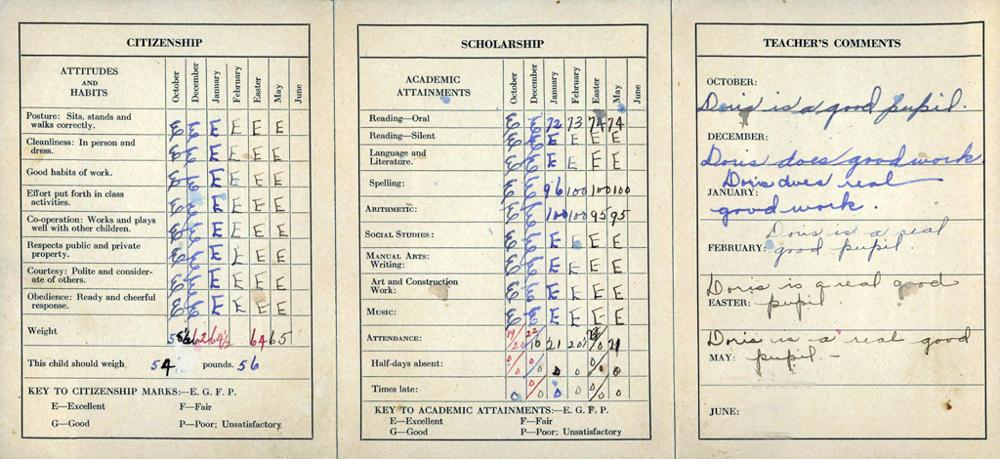 CITIZENSHIP
ATTITUDES
AND
HABITS
October
December
January
February
Easter
May
June
Posture: Sits, stands and
walks correctly.
E E E E E E
Cleanliness: In person and
dress.
E E E E E E
Good habits of work.
E E E E E E
Effort put forth in class
activities.
E E E E E E
Co-operation: Works and plays
well with other children.
E E E E E E
Respects public and private
property.
E E E E E E
Courtesy: Polite and consider-
ate of others.
E E E E E E
Obedience: Ready and cheerful
response.
E E E E E E
Weight 62 64½ 64 65
This child should weigh 54 pounds. 56
KEY TO CITIZENSHIP MARKS:—E. G. F. P.
E—Excellent F—Fair
G—Good P—Poor; Unsatisfactory.
SCHOLARSHIP
ACADEMIC
ATTAINMENTS
October
December
January
February
Easter
May
June
Reading—Oral E E 72 73 74 74
Reading—Silent E E E E E E
Language and
Literature. E E E E E E
Spelling: E E 96 100 100 100
ARITHMETIC: E E 100 100 95 95
SOCIAL STUDIES: E E E E E E
MANUAL ARTS:
Writing: E E E E E E
Art and Construction
Work: E E E E E E
MUSIC: E E E E E E
ATTENDANCE: 19/20 22/10 21 20½ 21
Half-days absent: 0/0 0/0 0 0 0/0 0
Times late: 0 0/0 0 0 0/0 0
KEY TO ACADEMIC ATTAINMENTS:—E. G. F. P.
E—Excellent F—Fair
G—Good P—Poor; Unsatisfactory
TEACHER'S COMMENTS
OCTOBER:
Doris is a good pupil.
DECEMBER:
Doris does good work
JANUARY: Doris does real
good work.
FEBRUARY: Doris is a real
good pupil.
Doris is a real good
EASTER: pupil
Doris is a real good
MAY: pupil —
JUNE: